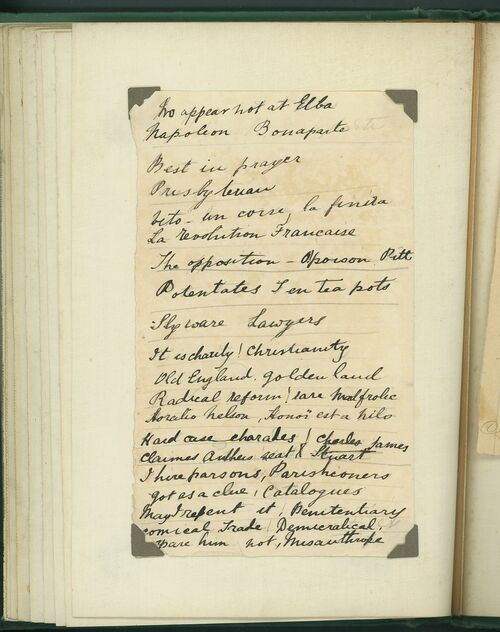 No appear not at Elba
Napoleon Bonaparte
Best in prayer
Presbyterian
Veto - un corse, la finira
La revolution Francaise
The opposition - O poison Pitt
Potentates Ten tea pots
Sly ware Lawyers
It is charity! Christianity
Old England. golden land
Radical reform! rare mad frolic
Horatio Nelson, Honor est a nilo
Hard case charades! Charles James
Claimes Authers seat! Stuart
I hire parsons, Parishioners
got as a clue, Catalogues
May I repent it, Penitentiary
comical Trade! Democratical,
spare him not, Misanthrope